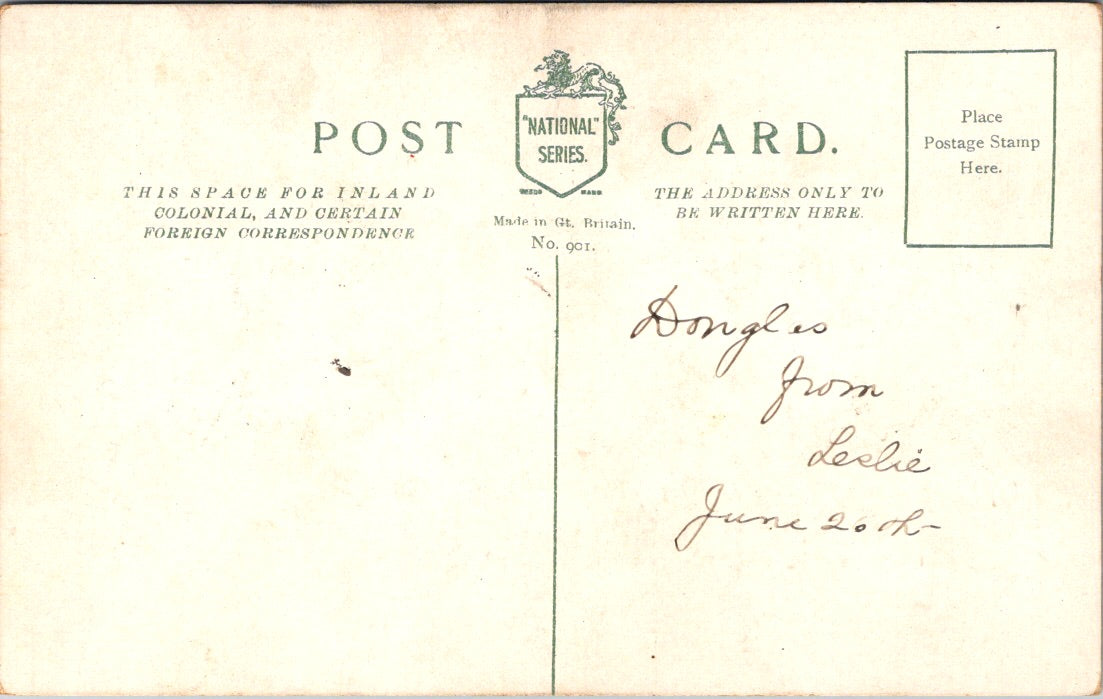 POST CARD.
"NATIONAL"
SERIES.
THIS SPACE FOR INLAND
COLONIAL, AND CERTAIN
FOREIGN CORRESPONDENCE
Made in Gt. Britain.
No. 901.
THE ADDRESS ONLY TO
BE WRITTEN HERE.
Place
Postage Stamp
Here.
Douglas
from
Leslie
June 20th